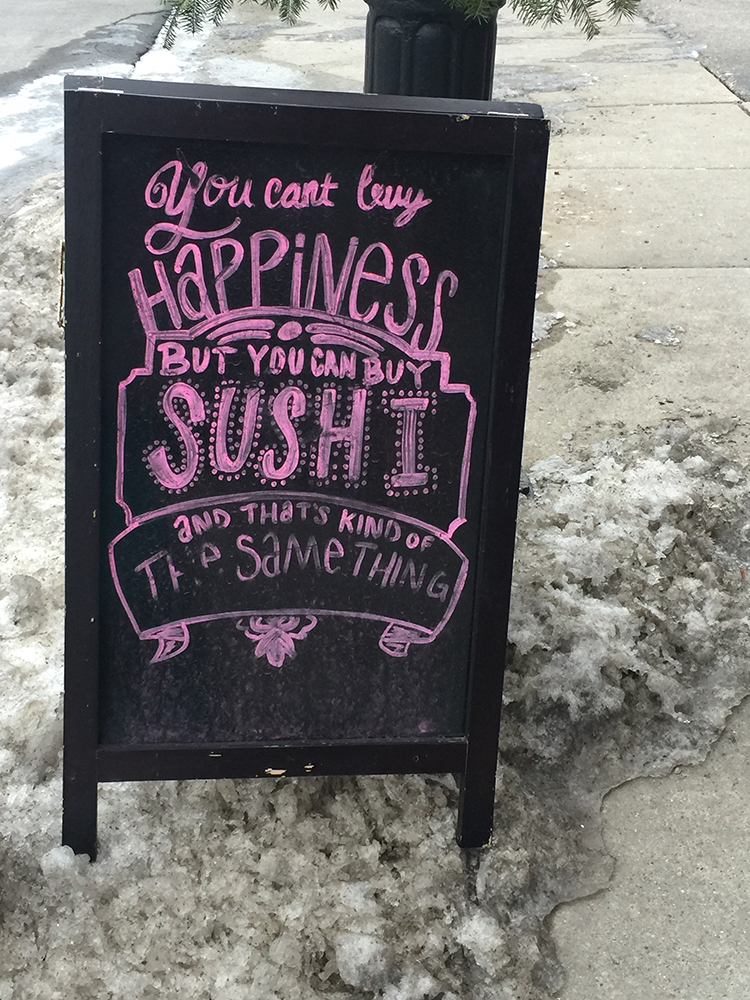 You cant buy
HAPPiNESS
BUT YOU CAN BUY
SUSHI
AND THAT'S KIND OF
THE SAME THING